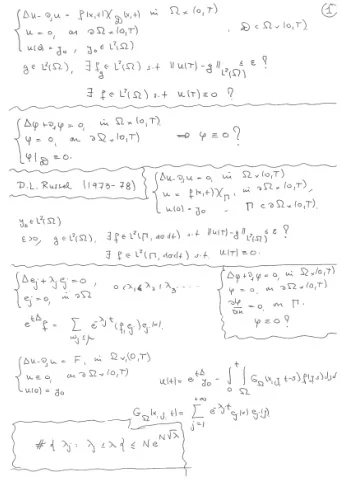 ①
Δu-∂ₜu = f(x,t)χ_𝒟(x,t) in Ω×(0,T)
u = 0, on ∂Ω×(0,T), 𝒟 ⊂ Ω×(0,T)
u(0) = y₀, y₀∈L²(Ω)
g∈L²(Ω), ∃ f_g∈L²(Ω) s.t. ‖u(T)-g‖_{L²(Ω)} ≤ ε ?
∃ f∈L²(Ω) s.t. u(T)≡0 ?
Δφ+∂ₜφ = 0, in Ω×(0,T)
φ = 0, on ∂Ω×(0,T) ⇒ φ≡0 ?
φ|_𝒟 ≡ 0.
D.L. Russel (1973-78)
Δu-∂ₜu = 0, in Ω×(0,T)
u = f(x,t)χ_Γ, in ∂Ω×(0,T),
u(0) = y₀, Γ ⊂ ∂Ω×(0,T).
y₀∈L²(Ω)
ε>0, g∈L²(Ω), ∃ f∈L²(Γ, dσdt) s.t. ‖u(T)-g‖_{L²(Ω)} ≤ ε ?
∃ f∈L²(Γ, dσdt) s.t. u(T)≡0.
Δeⱼ+λⱼeⱼ = 0, 0<λ₁≤λ₂≤λ₃....
eⱼ = 0, in ∂Ω
Δφ+∂ₜφ = 0, in Ω×(0,T)
φ = 0, on ∂Ω×(0,T)
∂φ/∂n = 0, on Γ.
φ≡0 ?
Δu-∂ₜu = F, in Ω×(0,T)
u = 0, on ∂Ω×(0,T)
u(0) = y₀
u(t) = e^{tΔ}y₀ - ∫₀ᵗ∫_Ω G_Ω(x,y,t-s)f(y,s)dyds
G_Ω(x,y,t) = ∑_{j=1}^{+∞} e^{-λⱼt}eⱼ(x)eⱼ(y)
#{λⱼ : λⱼ≤λ} ≤ Ne^{N√λ}